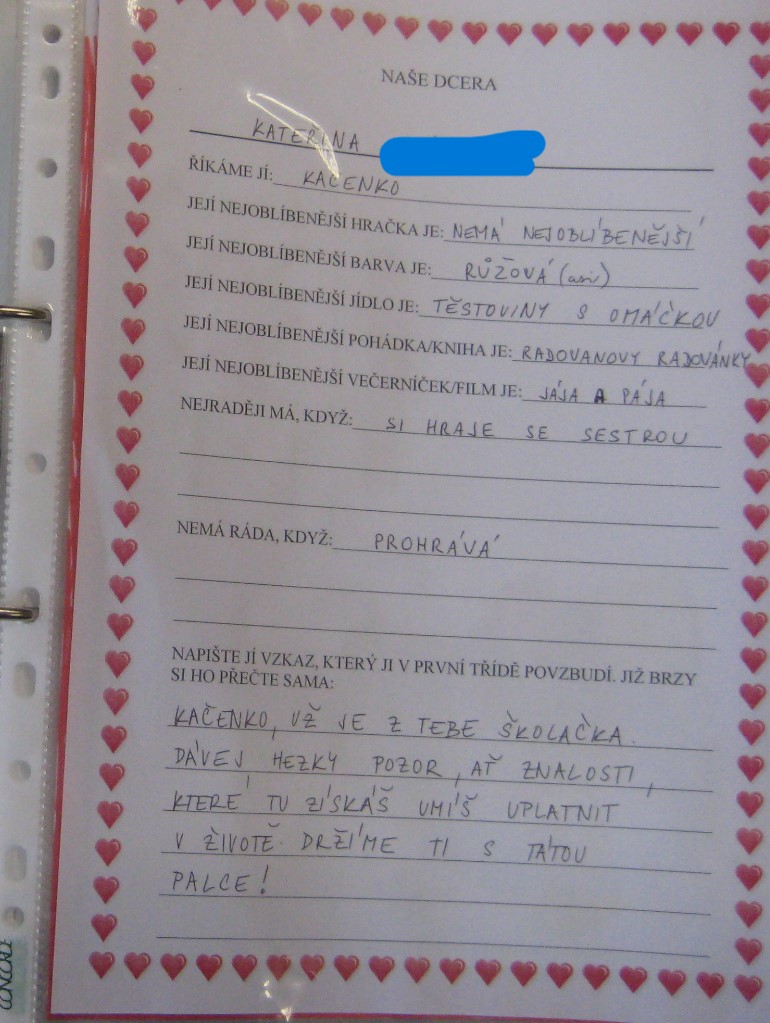 NAŠE DCERA
KATEŘINA
ŘÍKÁME JÍ: KAČENKO
JEJÍ NEJOBLÍBENĚJŠÍ HRAČKA JE: NEMÁ NEJOBLÍBENĚJŠÍ
JEJÍ NEJOBLÍBENĚJŠÍ BARVA JE: RŮŽOVÁ (asi)
JEJÍ NEJOBLÍBENĚJŠÍ JÍDLO JE: TĚSTOVINY S OMÁČKOU
JEJÍ NEJOBLÍBENĚJŠÍ POHÁDKA/KNIHA JE: RADOVANOVY RADOVÁNKY
JEJÍ NEJOBLÍBENĚJŠÍ VEČERNÍČEK/FILM JE: JÁJA A PÁJA
NEJRADĚJI MÁ, KDYŽ: SI HRAJE SE SESTROU
NEMÁ RÁDA, KDYŽ: PROHRÁVÁ
NAPIŠTE JÍ VZKAZ, KTERÝ JI V PRVNÍ TŘÍDĚ POVZBUDÍ. JIŽ BRZY
SI HO PŘEČTE SAMA:
KAČENKO, UŽ JE Z TEBE ŠKOLAČKA.
DÁVEJ HEZKY POZOR, AŤ ZNALOSTI,
KTERÉ TU ZÍSKÁŠ UMÍŠ UPLATNIT
V ŽIVOTĚ. DRŽÍME TI S TÁTOU
PALCE!
CONCORDE